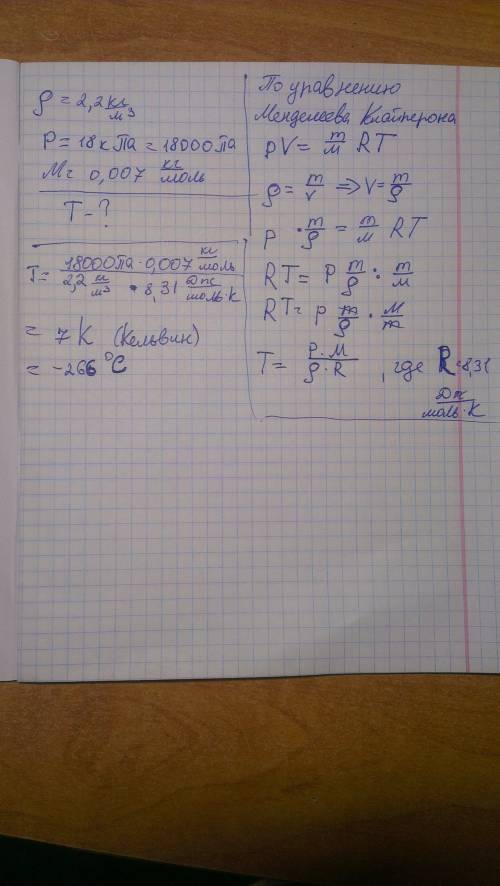 ρ = 2,2 кг/м³
P = 18 кПа = 18000 Па
M = 0,007 кг/моль
T - ?
T = 18000 Па · 0,007 кг/моль / 2,2 кг/м³ · 8,31 Дж/моль·К
= 7 К (Кельвин)
= -266 °C
По уравнению
Менделеева Клайперона
pV = m/M RT
ρ = m/V => V = m/ρ
p · m/ρ = m/M RT
RT = P m/ρ : m/M
RT = P m/ρ · M/m
T = P·M / ρ·R , где R = 8,31
Дж/моль·К